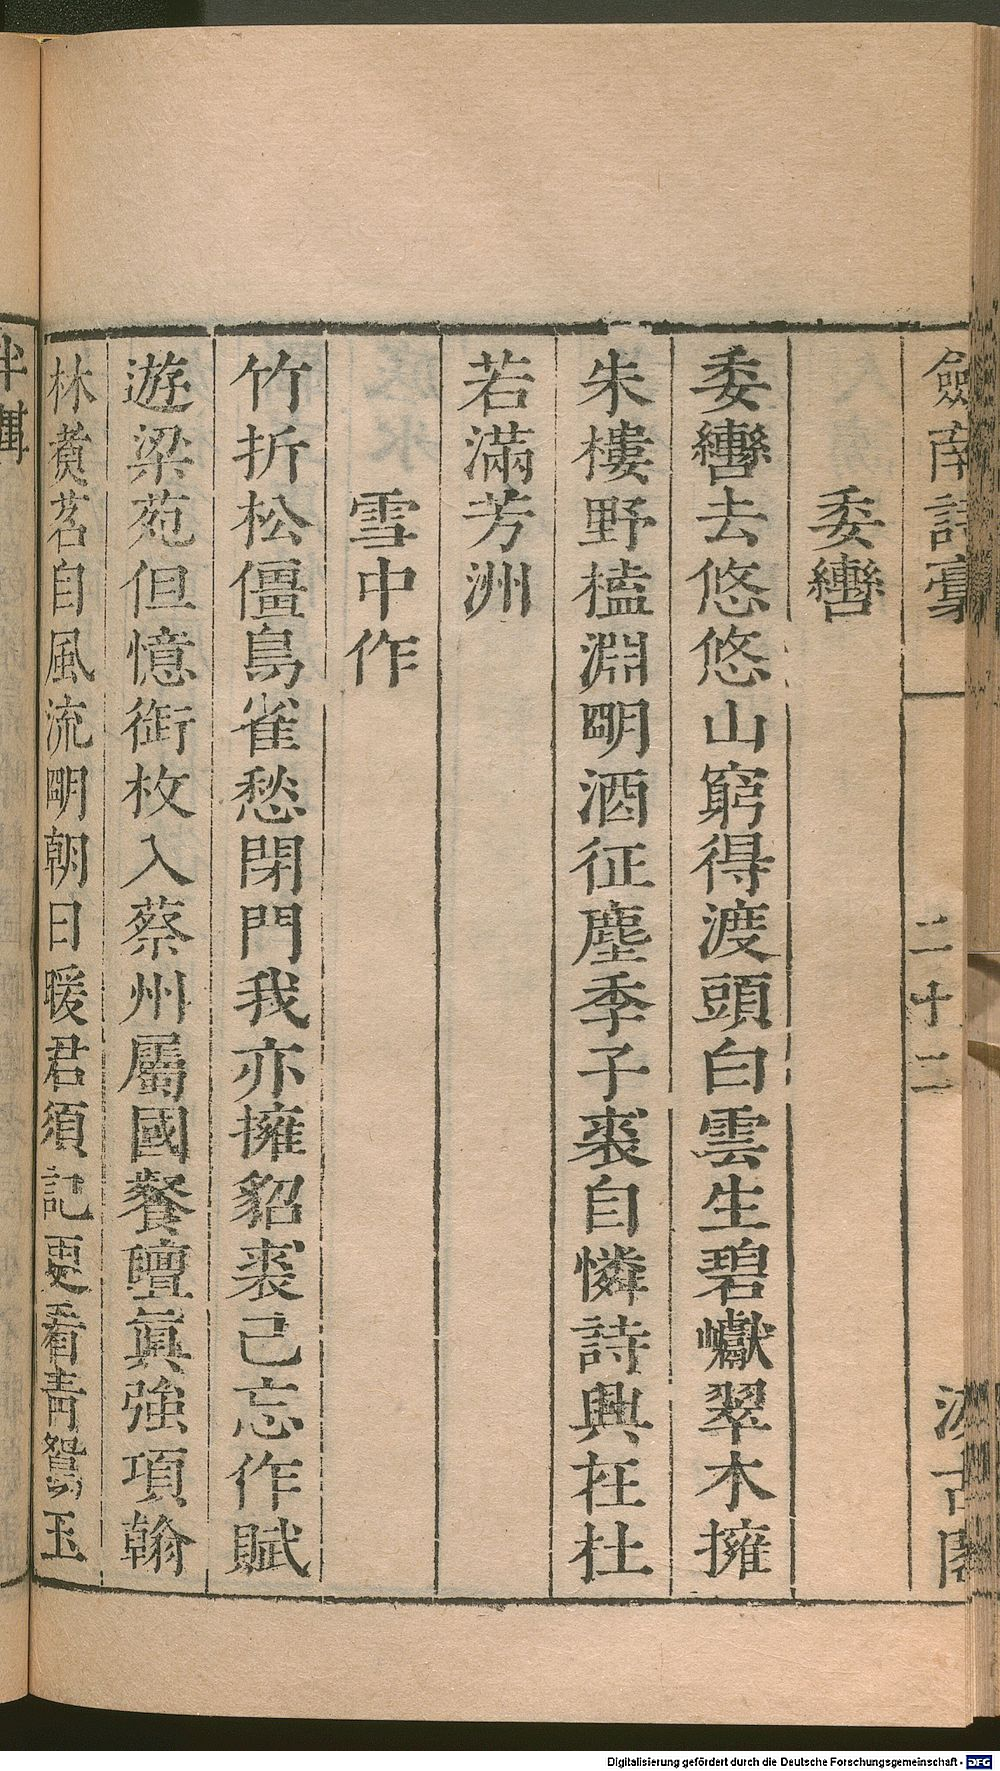 劍南詩稾 二十二 汲古閣
委轡
委轡去悠悠山窮得渡頭白雲生碧巘翠木擁
朱樓野榼淵明酒征塵季子裘自憐詩興在杜
若滿芳洲
雪中作
竹折松僵鳥雀愁閉門我亦擁貂裘己忘作賦
遊梁苑但憶銜枚入蔡州屬國餐氊眞強項翰
林煑茗自風流明朝日暖君須記更看青鴛玉
Digitalisierung gefördert durch die Deutsche Forschungsgemeinschaft - DFG